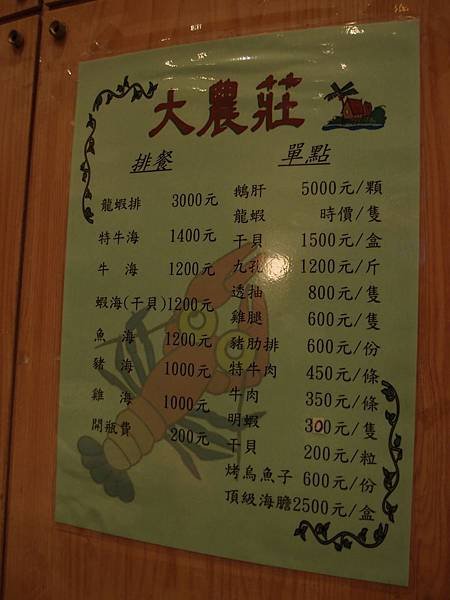 大農莊
排餐
龍蝦排 3000元
特牛海 1400元
牛 海 1200元
蝦海(干貝)1200元
魚 海 1200元
豬 海 1000元
雞 海 1000元
開瓶費 200元
單點
鵝肝 5000元/顆
龍蝦 時價/隻
干貝 1500元/盒
九孔 1200元/斤
透抽 800元/隻
雞腿 600元/隻
豬肋排 600元/份
特牛肉 450元/條
牛肉 350元/條
明蝦 300元/隻
干貝 200元/粒
烤烏魚子 600元/份
頂級海膽2500元/盒